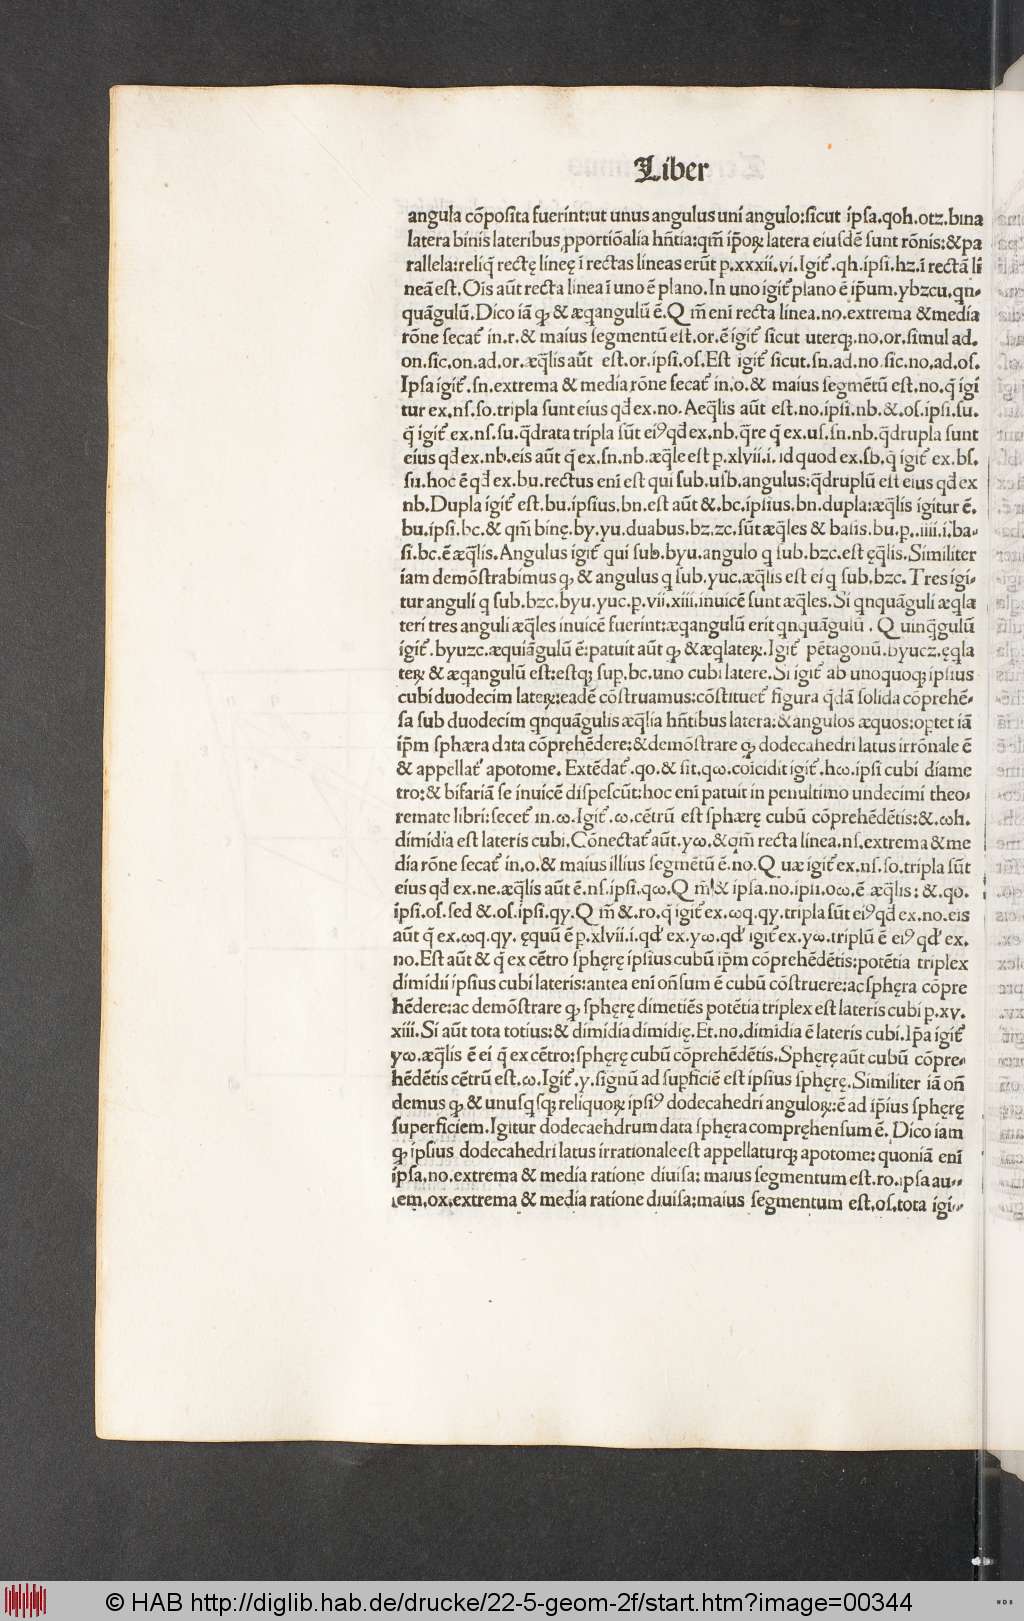 Liber
angula cõposita fuerint:ut unus angulus uni angulo:sicut ipsa.qoh.otz.bina
latera binis lateribus ꝓportiõalia hñtia:qm̃ ip̃oꝝ latera eiusdẽ sunt rõnis:&pa
rallela:reliq̃ rectę lineę ĩ rectas lineas erũt p.xxxii.vi.Igit̃.qh.ipsi.hz.ĩ rectã li
neã est.Ois aũt recta linea ĩ uno ẽ plano.In uno igit̃ plano ẽ ip̃um.ybzcu.qn-
quãgulũ.Dico iã ꝙ & æqangulũ ẽ.Qm̃ eni recta linea.no.extrema &media
rõne secat̃ in.r.& maius segmentũ est.or.ẽ igit̃ sicut uterqꝫ.no.or.simul ad.
on.sic.on.ad.or.æq̃lis aũt est.or.ipsi.os.Est igit̃ sicut.sn.ad.no.sic.no.ad.os.
Ipsa igit̃.sn.extrema & media rõne secat̃ in.o.& maius segmẽtũ est.no.q̃ igi
tur ex.ns.so.tripla sunt eius qd̃ ex.no.Aeq̃lis aũt est.no.ipsi.nb.&.os.ipsi.su.
q̃ igit̃ ex.ns.su.q̃drata tripla sũt eiꝰ qd̃ ex.nb.q̃re q̃ ex.us.sn.nb.q̃drupla sunt
eius qd̃ ex.nb.eis aũt q̃ ex.sn.nb.æq̃le est p.xlvii.i.id quod ex.sb.q̃ igit̃ ex.bs.
su.hoc ẽ qd̃ ex.bu.rectus eni est qui sub.usb.angulus:q̃druplũ est eius qd̃ ex
nb.Dupla igit̃ est.bu.ipsius.bn.est aũt &.bc.ipsius.bn.dupla:æq̃lis igitur ẽ.
bu.ipsi.bc.& qm̃ binę.by.yu.duabus.bz.zc.sũt æq̃les & basis.bu.p..iiii.i.ba-
si.bc.ẽ æq̃lis.Angulus igit̃ qui sub.byu.angulo q sub.bzc.est ęq̃lis.Similiter
iam demõstrabimus ꝙ & angulus q sub.yuc.æq̃lis est ei q sub.bzc.Tres igi-
tur anguli q sub.bzc.byu.yuc.p.vii.xiii.inuicẽ sunt æq̃les.Si qnquãguli æqla
teri tres anguli æq̃les inuicẽ fuerint:æqangulũ erit qnquãgulũ.Quinq̃gulũ
igit̃.byuzc.æquiãgulũ ẽ:patuit aũt ꝙ &æqlateꝝ.Igit̃ pẽtagonũ.byucz.ęqla
teꝝ & æqangulũ est:estqꝫ sup.bc.uno cubi latere.Si igit̃ ab unoquoqꝫ ipsius
cubi duodecim lateꝝ:eadẽ cõstruamus:cõstituet̃ figura q̃dã solida cõprehẽ-
sa sub duodecim qnquãgulis æq̃lia hñtibus latera:&angulos æquos:optet iã
ip̃m sphæra data cõprehẽdere:&demõstrare ꝙ dodecahedri latus irrõnale ẽ
& appellat̃ apotome.Extẽdat̃.qo.& sit.qω.coicidit igit̃.hω.ipsi cubi diame
tro:& bifariã se inuicẽ dispescũt:hoc eni patuit in penultimo undecimi theo-
remate libri:secet̃ in.ω.Igit̃.ω.cẽtrũ est sphærę cubũ cõprehẽdẽtis:&.ωh.
dimidia est lateris cubi.Cõnectat̃ aũt.yω.&qm̃ recta linea.ns.extrema &me
dia rõne secat̃ in.o.& maius illius segmẽtũ ẽ.no.Quæ igit̃ ex.ns.so.tripla sũt
eius qd̃ ex.ne.æq̃lis aũt ẽ.ns.ipsi.qω.Qm̃ & ipsa.no.ipsi.oω.ẽ æq̃lis:&.qo.
ipsi.os.sed &.os.ipsi.qy.Qm̃ &.ro.q̃ igit̃ ex.ωq.qy.tripla sũt eiꝰ qd̃ ex.no.eis
aũt q̃ ex.ωq.qy.ęquũ ẽ p.xlvii.i.qd̃ ex.yω.qd̃ igit̃ ex.yω.triplũ ẽ eiꝰ qd̃ ex.
no.Est aũt & q̃ ex cẽtro sphęrę ipsius cubũ ip̃m cõprehẽdẽtis:potẽtia triplex
dimidii ipsius cubi lateris:antea eni oñsum ẽ cubũ cõstruere:ac sphęra cõpre
hẽdere:ac demõstrare ꝙ sphęrę dimetiẽs potẽtia triplex est lateris cubi p.xv.
xiii.Si aũt tota totius:& dimidia dimidię.Et.no.dimidia ẽ lateris cubi.Ip̃a igit̃
yω.æq̃lis ẽ ei q̃ ex cẽtro:sphęrę cubũ cõprehẽdẽtis.Sphęrę aũt cubũ cõpre-
hẽdẽtis cẽtrũ est.ω.Igit̃.y.signũ ad supficiẽ est ipsius sphęrę.Similiter iã oñ
demus ꝙ & unusqsqꝫ reliquoꝝ ipsiꝰ dodecahedri anguloꝝ:ẽ ad ip̃ius sphęrę
superficiem.Igitur dodecaehdrum data sphęra compręhensum ẽ.Dico iam
ꝙ ipsius dodecahedri latus irrationale est appellaturqꝫ apotome:quoniã eni
ipsa.no.extrema & media ratione diuisa:maius segmentum est.ro.ipsa au-
tem.ox.extrema & media ratione diuisa:maius segmentum est.os.tota igi-
© HAB http://diglib.hab.de/drucke/22-5-geom-2f/start.htm?image=00344